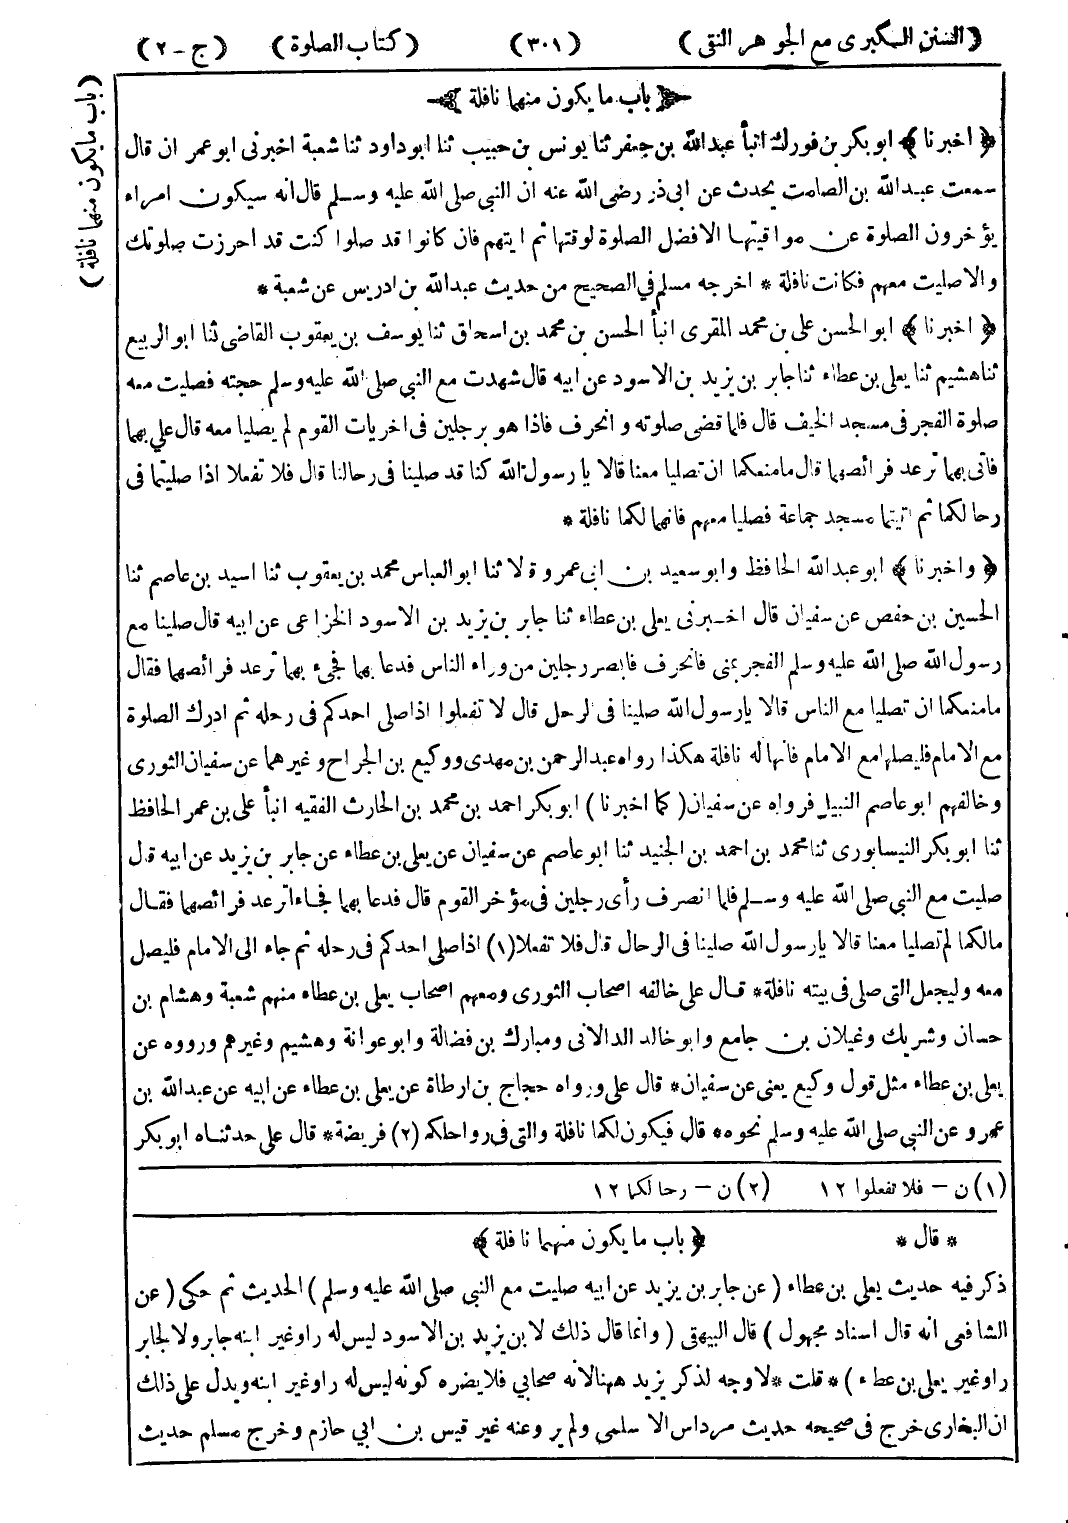 (السنن الكبرى مع الجوهر النقى) (٣٠١) (كتاب الصلوة) (ج - ٢)
(باب ما يكون منهما نافلة)
باب ما يكون منهما نافلة
﴿ اخبرنا ﴾ ابو بكر بن فورك انبأ عبدالله بن جعفر ثنا يونس بن حبيب ثنا ابوداود ثنا شعبة اخبرنى ابو عمر ان قال
سمعت عبدالله بن الصامت يحدث عن ابى ذر رضى الله عنه ان النبى صلى الله عليه وسلم قال انه سيكون امراء
يؤخرون الصلوة عن مواقيتها الافضل الصلوة لوقتها ثم ايتهم فان كانوا قد صلوا كنت قد احرزت صلوتك
والاصليت معهم فكانت نافلة * اخرجه مسلم في الصحيح من حديث عبدالله بن ادريس عن شعبة *
﴿ اخبرنا ﴾ ابو الحسن على بن محمد المقرى انبأ الحسن بن محمد بن اسحاق ثنا يوسف بن يعقوب القاضى ثنا ابو الربيع
ثنا هشيم ثنا يعلى بن عطاء ثنا جابر بن يزيد بن الاسود عن ابيه قال شهدت مع النبي صلى الله عليه وسلم حجته فصليت معه
صلوة الفجر فى مسجد الخيف قال فلما قضى صلوته و انحرف فاذا هو برجلين فى اخريات القوم لم يصليا معه قال علي بهما
فاتى بهما ترعد فرائصهما قال مامنعكما ان تصليا معنا قالا يا رسول الله كنا قد صلينا فى رحالنا قال فلا تفعلا اذا صليتما فى
رحالكما ثم اتيتما مسجد جماعة فصليا معهم فانهما لكما نافلة *
﴿ واخبرنا ﴾ ابو عبدالله الحافظ وابو سعيد بن ابى عمرو قالا ثنا ابو العباس محمد بن يعقوب ثنا اسيد بن عاصم ثنا
الحسين بن حفص عن سفيان قال اخبرنى يعلى بن عطاء ثنا جابر بن يزيد بن الاسود الخزاعى عن ابيه قال صلينا مع
رسول الله صلى الله عليه وسلم الفجر بمنى فانحرف فابصر رجلين من وراء الناس فدعا بهما فجىء بهما ترعد فرائصهما فقال
مامنعكما ان تصليا مع الناس قالا يارسول الله صلينا فى الرحل قال لا تفعلوا اذاصلى احدكم فى رحله ثم ادرك الصلوة
مع الامام فليصلها مع الامام فانها له نافلة هكذا رواه عبدالرحمن بن مهدى ووكيع بن الجراح وغيرهما عن سفيان الثورى
وخالفهم ابو عاصم النبيل فرواه عن سفيان (كما اخبرنا) ابو بكر احمد بن محمد بن الحارث الفقيه انبأ على بن عمر الحافظ
ثنا ابو بكر النيسابورى ثنا محمد بن احمد بن الجنيد ثنا ابو عاصم عن سفيان عن يعلى بن عطاء عن جابر بن يزيد عن ابيه قال
صليت مع النبي صلى الله عليه وسلم فلما انصرف رأى رجلين فى مؤخر القوم قال فدعا بهما فجاءا ترعد فرائصهما فقال
مالكما لم تصليا معنا قالا يارسول الله صلينا فى الرحال قال فلا تفعلا (١) اذاصلى احدكم فى رحله ثم جاء الى الامام فليصل
معه وليجعل التى صلى فى بيته نافلة * قال على خالفه اصحاب الثورى ومعهم اصحاب يعلى بن عطاء منهم شعبة وهشام بن
حسان وشريك وغيلان بن جامع وابو خالد الدالانى ومبارك بن فضالة وابو عوانة وهشيم وغيرهم ورووه عن
يعلى بن عطاء مثل قول وكيع يعنى عن سفيان * قال على ورواه حجاج بن ارطاة عن يعلى بن عطاء عن ابيه عن عبدالله بن
عمرو عن النبي صلى الله عليه وسلم نحوه * قال فيكون لكما نافلة والتى فى رواحلكم (٢) فريضة * قال على حدثناه ابو بكر
(١) ن - فلا تفعلوا ١٢ (٢) ن - رحالكما ١٢
* قال * ﴿ باب ما يكون منهما نافلة ﴾
ذكر فيه حديث يعلى بن عطاء (عن جابر بن يزيد عن ابيه صليت مع النبي صلى الله عليه وسلم) الحديث ثم حكى (عن
الشافعى انه قال اسناد مجهول) قال البيهقى (وانما قال ذلك لا بن يزيد بن الاسود ليس له راو غير ابنه جابر ولا لجابر
راو غير يعلى بن عطاء) * قلت * لا وجه لذكر يزيد ههنا لانه صحابي فلا يضره كونه ليس له راو غير ابنه ويدل على ذلك
ان البخارى خرج فى صحيحه حديث مرداس الاسلمى ولم يروعنه غير قيس بن ابي حازم وخرج مسلم حديث